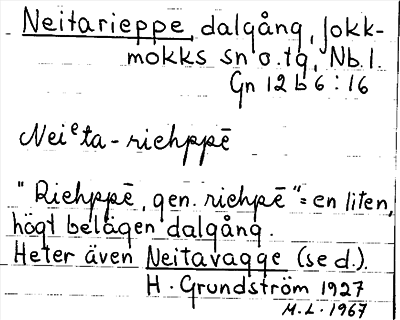 Neitarieppe, dalgång, Jokk-
mokks sn o. tg, Nb. l.
Gn 12 b 6 : 16
Neiᵉta-riehppē
"Riehppē, gen. riehpē" = en liten,
högt belägen dalgång.
Heter även Neitavagge (se d.).
H. Grundström 1927
M. L. 1967